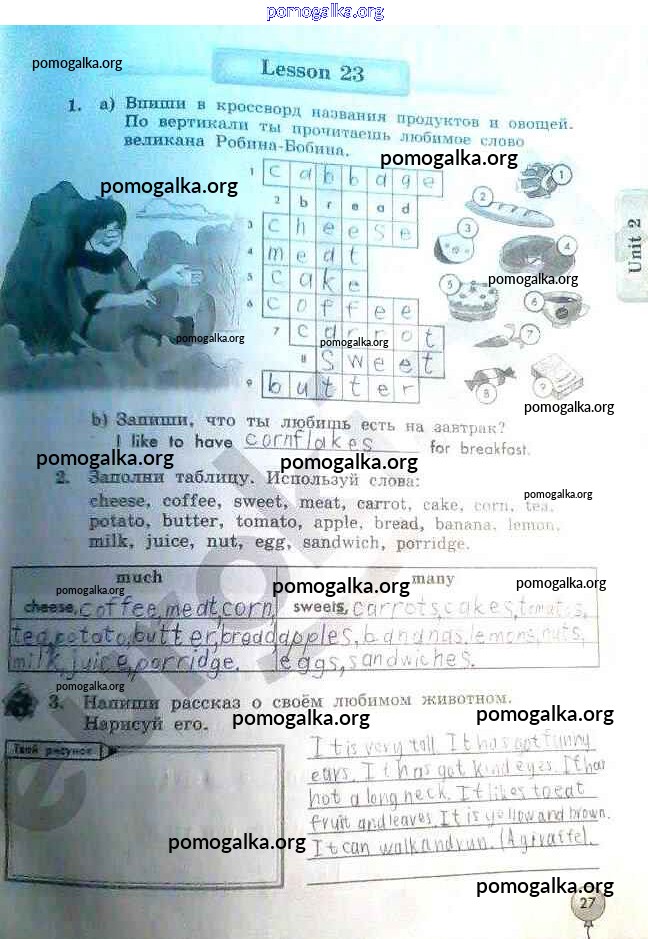 pomogalka.org
pomogalka.org
Lesson 23
1. а) Впиши в кроссворд названия продуктов и овощей.
По вертикали ты прочитаешь любимое слово
великана Робина-Бобина.
pomogalka.org
pomogalka.org
1 cabbage
2 bread
3 cheese
4 meat
5 cake
6 coffee
7 carrot
8 sweet
9 butter
1
2
3
4
5
6
7
8
9
Unit 2
pomogalka.org
pomogalka.org
pomogalka.org
pomogalka.org
b) Запиши, что ты любишь есть на завтрак?
I like to have cornflakes for breakfast.
pomogalka.org
pomogalka.org
2. Заполни таблицу. Используй слова:
pomogalka.org
cheese, coffee, sweet, meat, carrot, cake, corn, tea,
potato, butter, tomato, apple, bread, banana, lemon,
milk, juice, nut, egg, sandwich, porridge.
much
many
pomogalka.org
pomogalka.org
pomogalka.org
cheese, coffee, meat, corn,
tea, potato, butter, bread
milk, juice, porridge.
sweets, carrots, cakes, tomatoes,
apples, bananas, lemons, nuts,
eggs, sandwiches.
pomogalka.org
3. Напиши рассказ о своём любимом животном.
Нарисуй его.
pomogalka.org
pomogalka.org
Твой рисунок
It is very tall. It has got funny
ears. It has got kind eyes. It has
hot a long neck. It likes to eat
fruit and leaves. It is yellow and brown.
It can walk and run. (A giraffe).
pomogalka.org
pomogalka.org
27